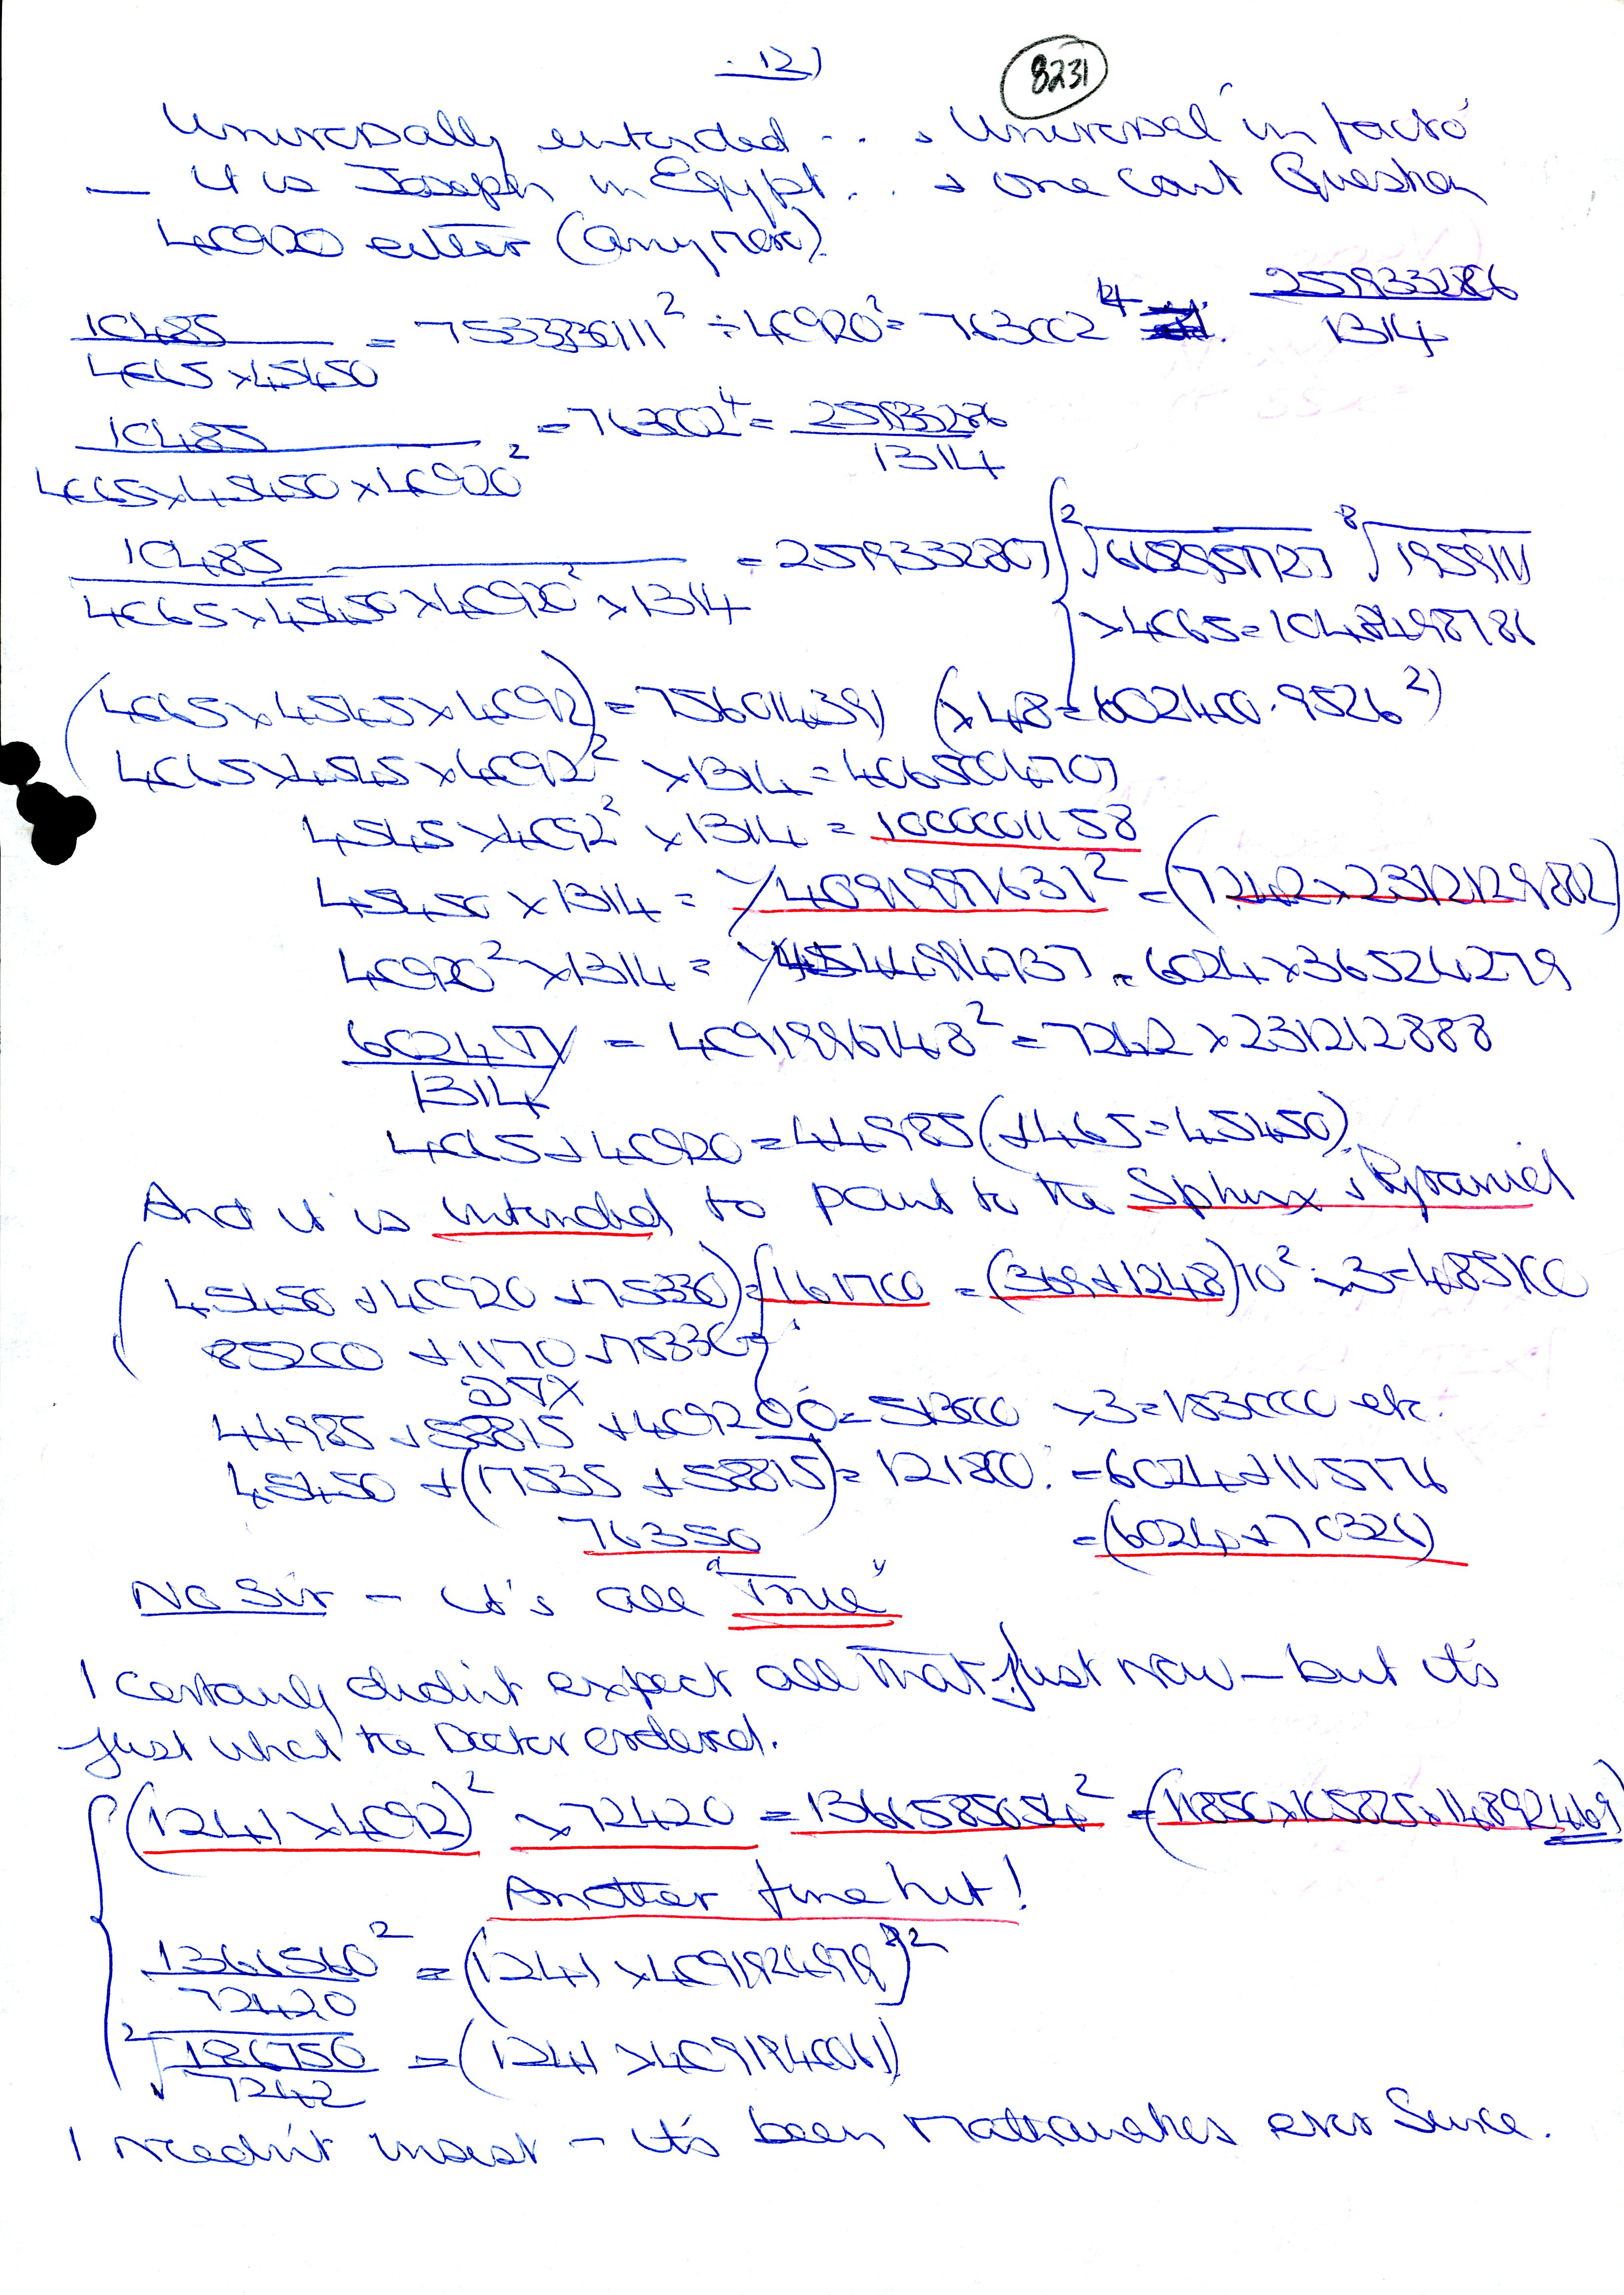 12)
8231
Universally intended ... & 'Universal' in facto'
— it is Joseph in Egypt... & one cant Question
40920 either (any more).
10485 / 4065 x 45450 = 753336111² ÷ 40920² = 763002⁴ 257933286 / 1314
10485 / 4065 x 45450 x 40920² = 763002⁴ = 257933286 / 1314
10485 / 4065 x 45450 x 40920² x 1314 = 2579332807
x 4065 = 1048498786
(4065 x 4545 x 4092) = 75601439) (x 48 = 602400.9526²)
4065 x 4545 x 4092² x 1314 = 4065004707
4545 x 4092² x 1314 = 1000001158
45450 x 1314 = 1/4091997637² = (7242 x 2312129882)
40920² x 1314 = 1/4544994737 = 6024 x 36524279
/ 1314 = 4091996748² = 7242 x 231212888
4065 + 40920 = 44985 (+465 = 45450)
And it is intended to point to the Sphinx & Pyramid
(45450 + 40920 + 75330) = 161700 = (369 + 1248)10² x 3 = 485100
85200 + 1170 + 75330
44985 + 58815 + 409200 = 513000 x 3 = 1539000 etc.
45450 + (17535 + 58815) = 121800 = 6024 + 115776
76350 = (6024 + 70326)
No Sir - it's all "True"
I certainly didn't expect all that just now - but it's
just what the Doctor ordered.
(1241 x 4092)² x 72420 = 1366585054² = (11850 x 105825 x 14892469)
Another fine hit!
1366560² / 72420 = (1241 x 4091924978)²
²√ 186750 / 7242 = (1241 x 4091940061)
I needn't insist - it's been Mathematics ever Since.